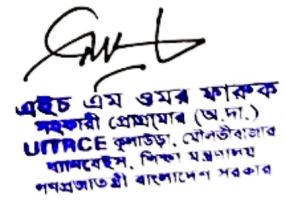 এইচ এম ওমর ফারুক
সহকারী প্রোগ্রামার (অ.দা.)
UITRCE কুলাউড়া, মৌলভীবাজার
ব্যানবেইস, শিক্ষা মন্ত্রণালয়
গণপ্রজাতন্ত্রী বাংলাদেশ সরকার